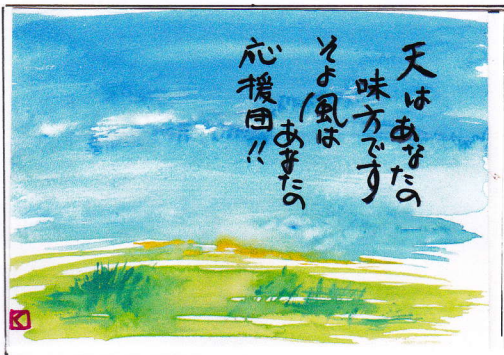 天はあなたの
味方です
そよ風は
あなたの
応援団!!